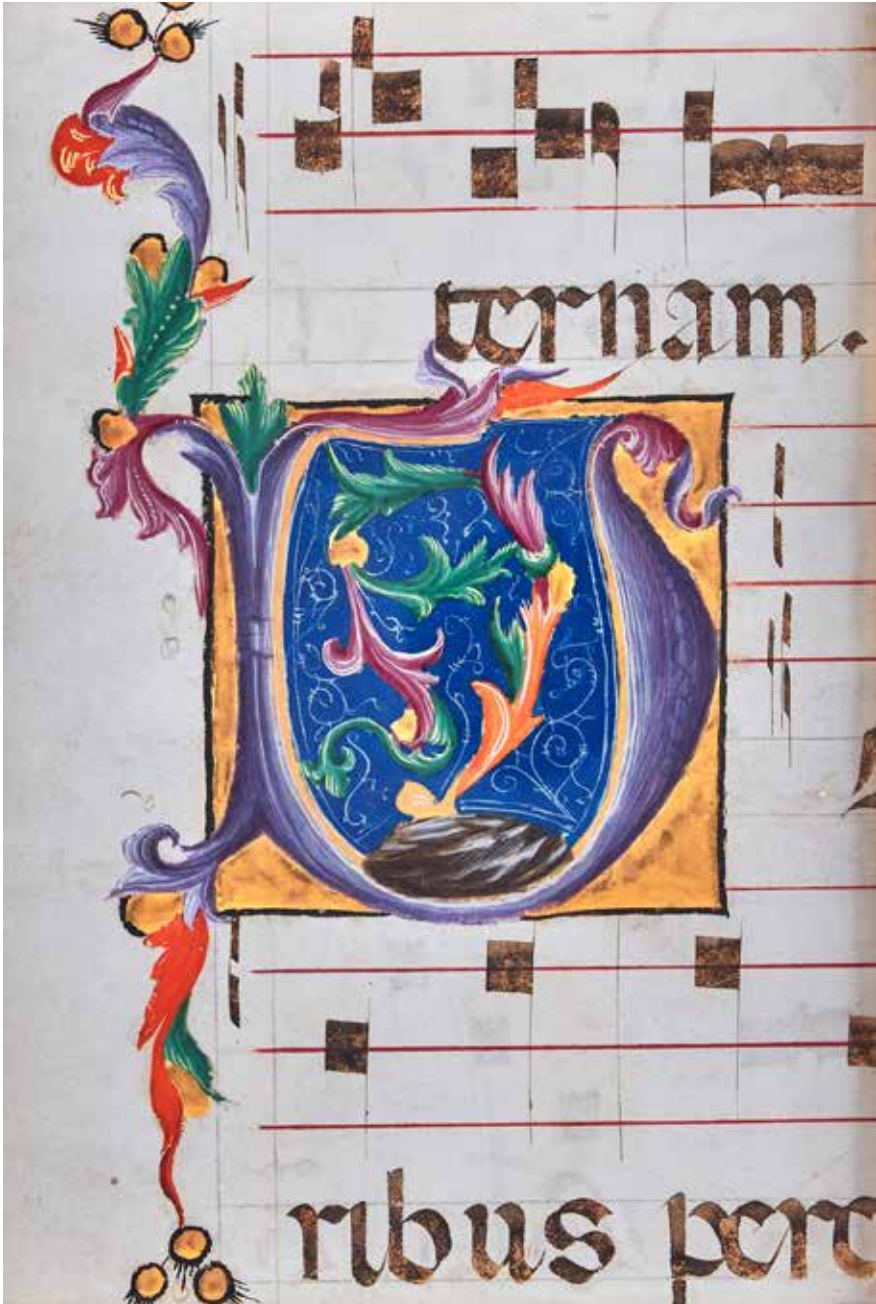 ternam.
V
ribus perc